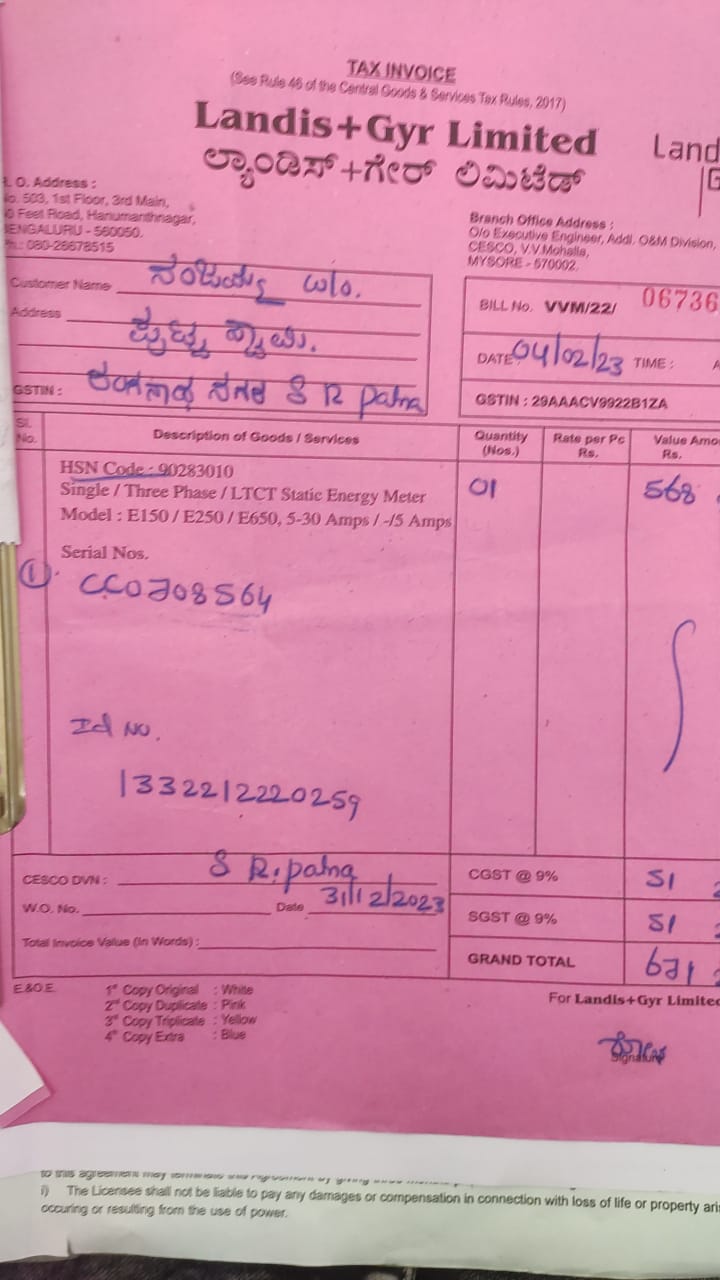 TAX INVOICE
(See Rule 46 of the Central Goods & Services Tax Rules, 2017)
Landis+Gyr Limited
ಲ್ಯಾಂಡಿಸ್+ಗೇರ್ ಲಿಮಿಟೆಡ್
Land
O. Address :
No. 503, 1st Floor, 3rd Main,
Feet Road, Hanumanthnagar,
BENGALURU - 560050.
Ph.: 080-26678515
Branch Office Address :
O/o Executive Engineer, Addl. O&M Division,
CESCO, V.V.Mohalla,
MYSORE - 570002.
Customer Name W/o.
Address
GSTIN : S R patna
BILL No. VVM/22/ 06736
DATE 04/02/23 TIME :
GSTIN : 29AAACV9922B1ZA
Sl. No. Description of Goods / Services Quantity (Nos.) Rate per Pc Rs. Value Rs.
HSN Code : 90283010
Single / Three Phase / LTCT Static Energy Meter 01 568
Model : E150 / E250 / E650, 5-30 Amps / -/5 Amps
Serial Nos.
① CC0708564
Id No.
1332212220259
CESCO DVN : S R. patna
W.O. No. Date 31/12/2023
Total Invoice Value (In Words) :
CGST @ 9% 51
SGST @ 9% 51
GRAND TOTAL 671
E.&O.E.
1st Copy Original : White
2nd Copy Duplicate : Pink
3rd Copy Triplicate : Yellow
4th Copy Extra : Blue
For Landis+Gyr Limited
Signature
to this agreement may terminate this Agreement by giving three
i) The Licensee shall not be liable to pay any damages or compensation in connection with loss of life or property
occuring or resulting from the use of power.